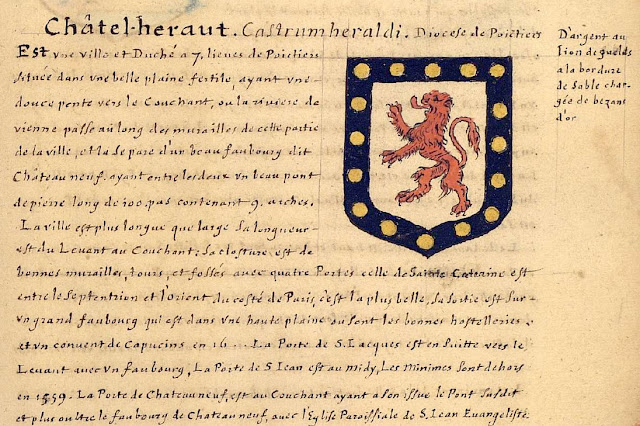 Châtel-heraut. Castrum heraldi. Diocese de Poictiers
Est vne ville et Duché a 7. lieues de Poictiers
située dans vne belle plaine fertile, ayant vne
douce pente vers le Couchant, ou la riuiere de
vienne passe au long des murailles de cette partie
de la ville, et la separe d'un beau faubourg dit
Château neuf. ayant entre les deux vn beau pont
de pierre long de 100. pas contenant 9. arches.
La ville est plus longue que large sa longueur
est du Leuant au Couchant; sa closture est de
bonnes murailles, tours, et fossés auec quatre Portes celle de Sainte Cateraine est
entre le Septentrion et l'Orient du costé de Paris, c'est la plus belle, sa sortie est sur
vn grand faubourg qui est dans vne haute plaine ou sont les bonnes hostelleries
et vn conuent de Capucins en 16 . . La Porte de S. Iacques est en suitte vers le
Leuant auec vn faubourg, La Porte de S. Iean est au midy, Les Minimes sont dehors
en 1559. La Porte de Chateauneuf, est au Couchant ayant a son issue le Pont susdit
et plus oultre le faubourg de Chateau neuf, auec l'Eglise Paroissiale de S. Iean Euangeliste
D'argent au
lion de gueulds
a la bordure
de sable char-
gée de bezans
d'or